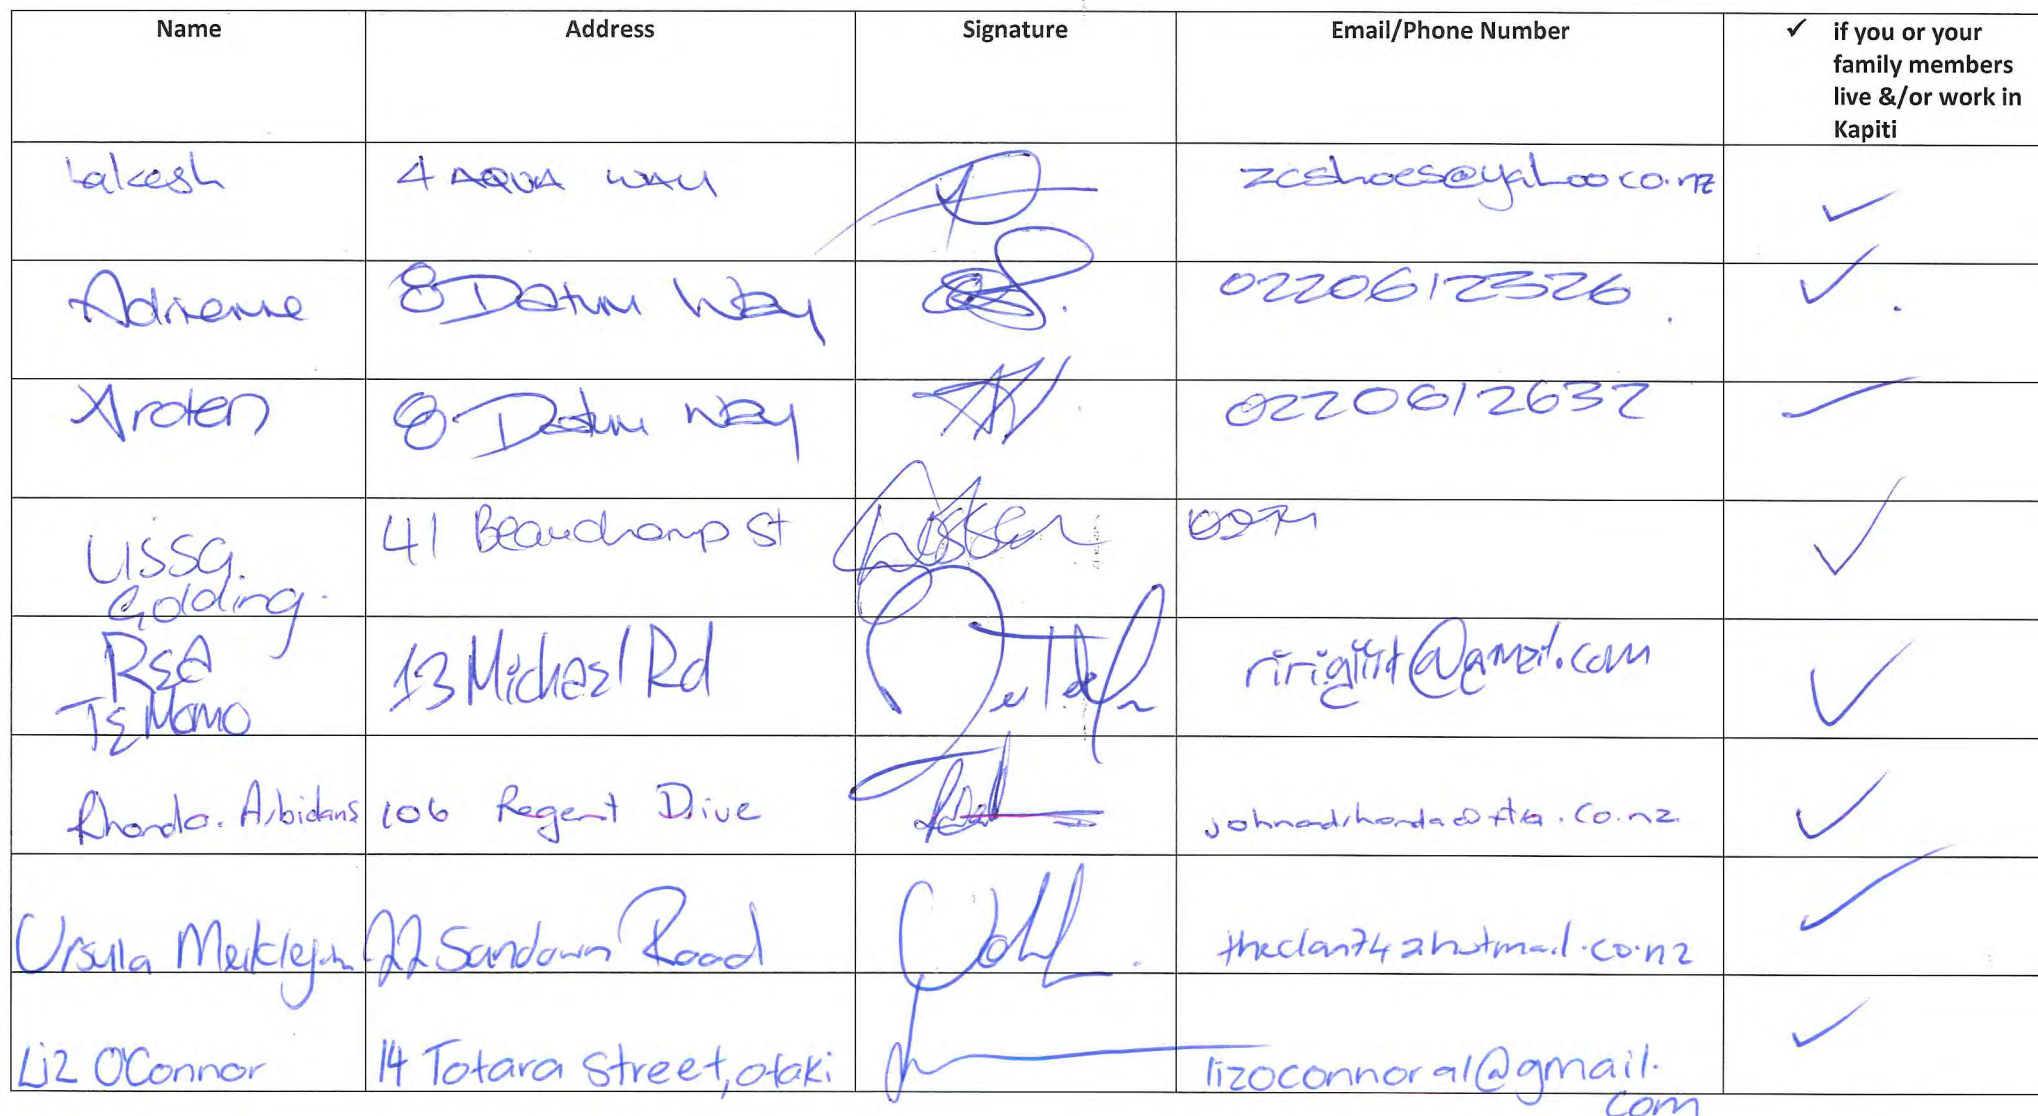 Name Address Signature Email/Phone Number ✓ if you or your
family members
live &/or work in
Kapiti
Lakesh 4 AQUA WAY zcshoes@yahoo co.nz ✓
Adrienne 8 Datum Way 0220612526 ✓
Aroten 8 Datum Way 0220612632
41 Beauchamp St ✓
Golding.
13 Michael Rd ✓
Te Momo
Rhonda. Arbidans 106 Regent Drive ✓
Ursula Meiklejohn 22 Sandown Road theclan74 hotmail.co.nz ✓
Liz O'Connor 14 Totara Street, otaki lizoconnor @gmail. ✓
com